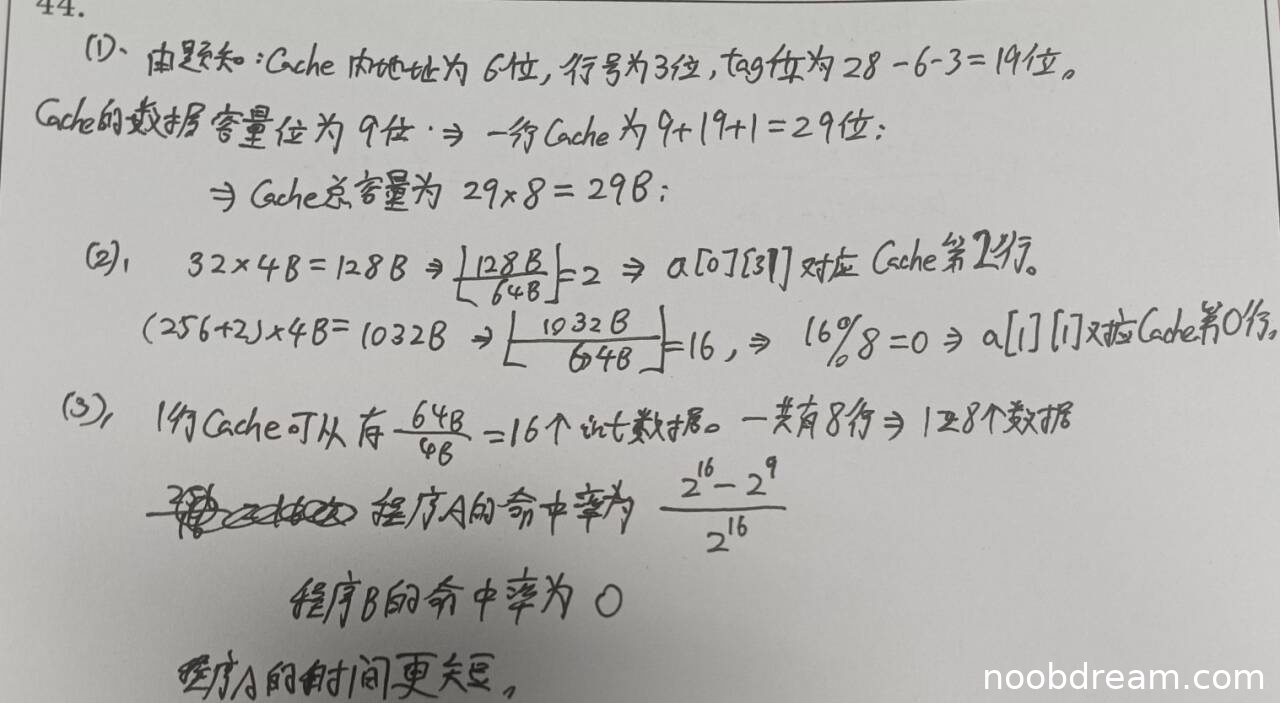 44.
(1)、由题知:Cache 内地址为 6位,行号为3位,tag位为 28-6-3=19位。
Cache的数据容量位为 9位 ⇒ 一行Cache为 9+19+1=29位;
⇒ Cache总容量为 29×8=29B;
(2), 32×4B=128B ⇒ ⌊128B/64B⌋=2 ⇒ a[0][31]对应 Cache第 行。
(256+2)×4B=1032B ⇒ ⌊1032B/64B⌋=16, ⇒ 16%8=0 ⇒ a[1][1]对应Cache第0行,
(3), 1行Cache可以存 64B/4B =16个int数据。一共有8行⇒ 128个数据
程序A的命中率为 (2^16-2^9)/2^16
程序B的命中率为 0
程序A的时间更短,
noobdream.com